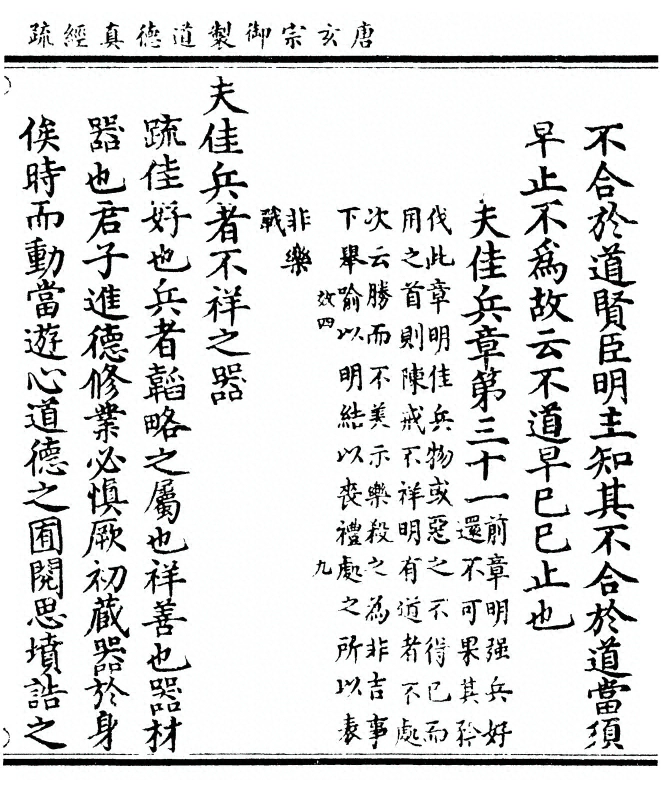 唐玄宗御製道德真經疏
不合於道賢臣明主知其不合於道當須
早止不爲故云不道早已已止也
夫佳兵章第三十一
前章明强兵好
還不可果其矜
伐此章明佳兵物或惡之不得已而
用之首則陳戒不祥明有道者不處
次云勝而不美示樂殺之為非吉事
下舉喻以明結以喪禮處之所以表
非樂
戰
效四
九
夫佳兵者不祥之器
疏佳好也兵者韜略之屬也祥善也器材
器也君子進德修業必慎厥初蔵器於身
俟時而動當遊心道德之囿閱思墳誥之